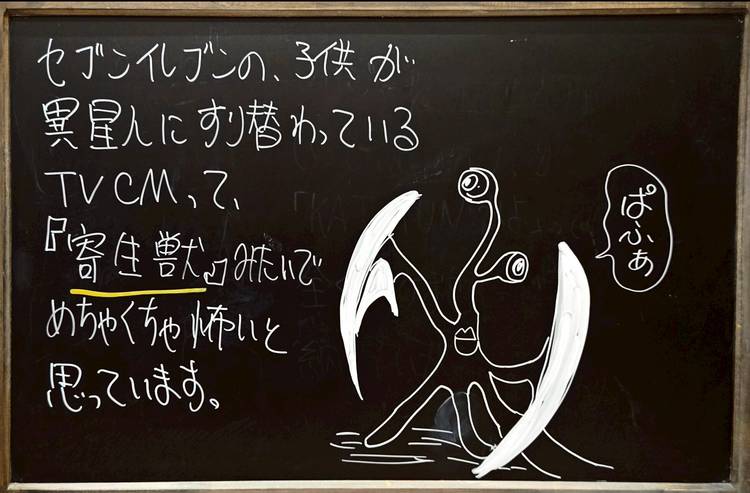 セブンイレブンの、子供が
異星人にすり替わっている
TVCMって、
『寄生獣』みたいで
めちゃくちゃ怖いと
思っています。
ぱふぁ